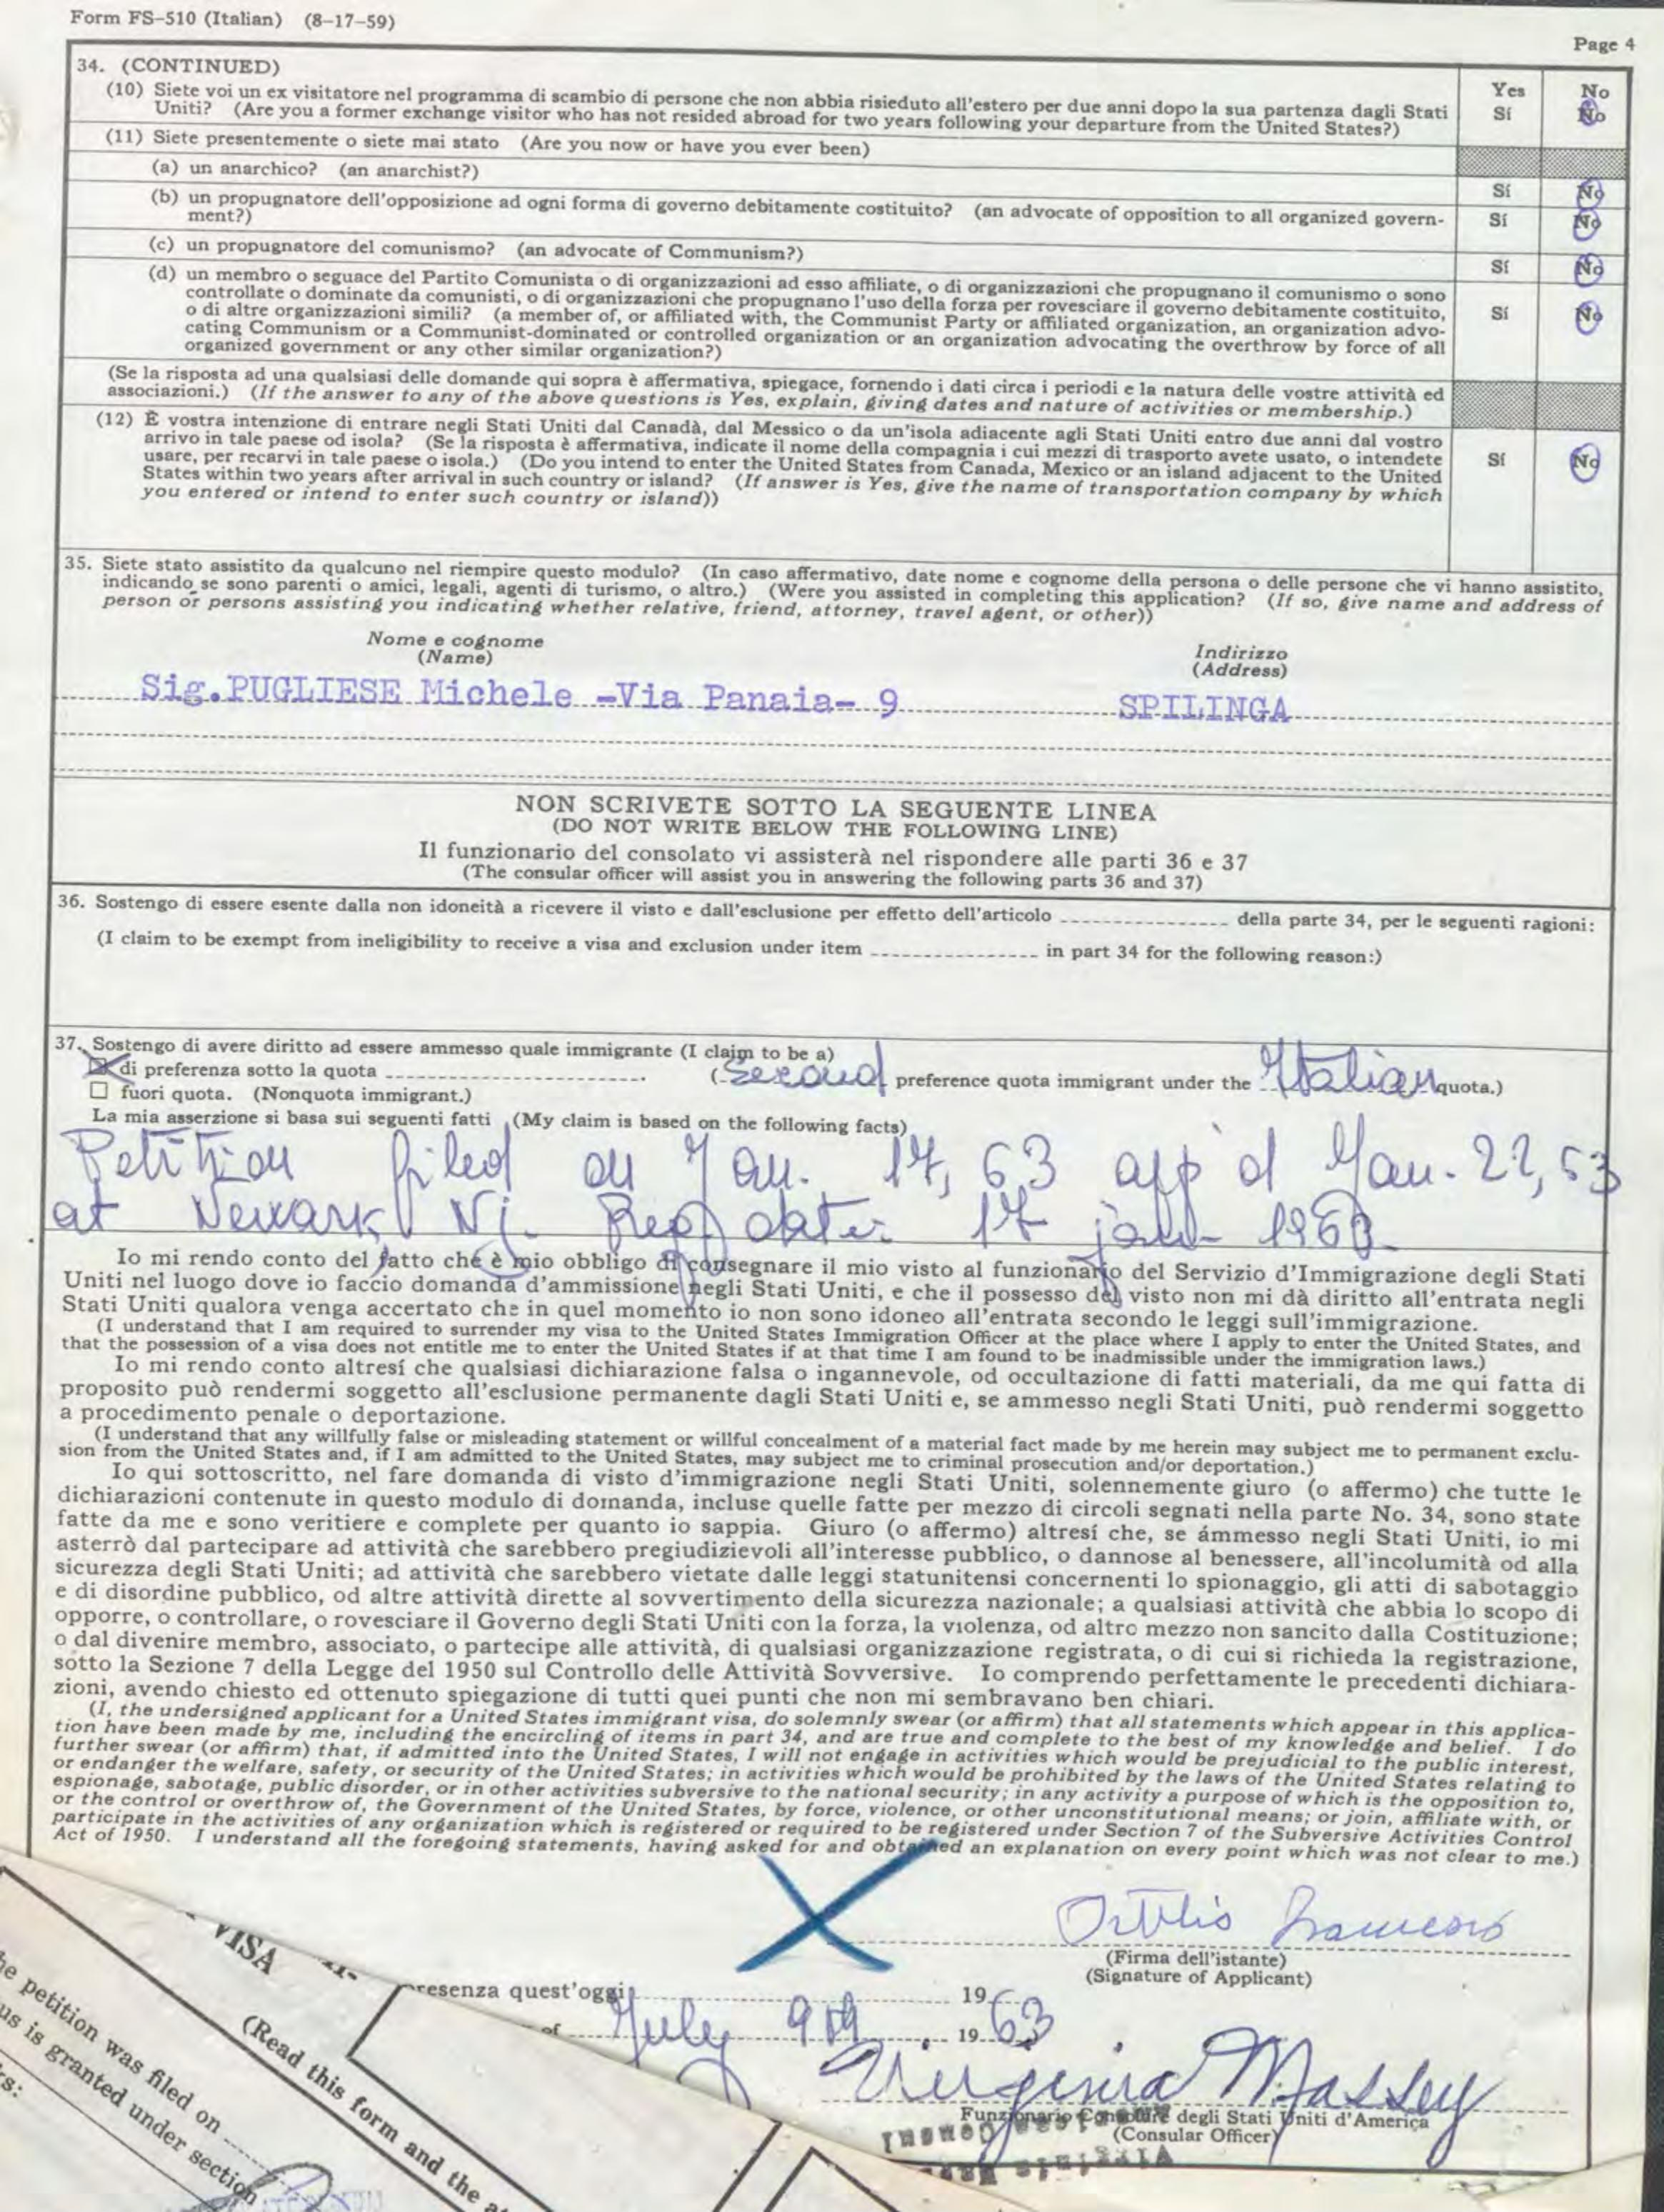 Form FS-510 (Italian) (8-17-59)
Page 4
34. (CONTINUED)
Yes No
(10) Siete voi un ex visitatore nel programma di scambio di persone che non abbia risieduto all'estero per due anni dopo la sua partenza dagli Stati
Uniti? (Are you a former exchange visitor who has not resided abroad for two years following your departure from the United States?)
Sí No
(11) Siete presentemente o siete mai stato (Are you now or have you ever been)
(a) un anarchico? (an anarchist?)
Sí No
(b) un propugnatore dell'opposizione ad ogni forma di governo debitamente costituito? (an advocate of opposition to all organized govern-
ment?)
Sí No
(c) un propugnatore del comunismo? (an advocate of Communism?)
Sí No
(d) un membro o seguace del Partito Comunista o di organizzazioni ad esso affiliate, o di organizzazioni che propugnano il comunismo o sono
controllate o dominate da comunisti, o di organizzazioni che propugnano l'uso della forza per rovesciare il governo debitamente costituito,
o di altre organizzazioni simili? (a member of, or affiliated with, the Communist Party or affiliated organization, an organization advo-
cating Communism or a Communist-dominated or controlled organization or an organization advocating the overthrow by force of all
organized government or any other similar organization?)
Sí No
(Se la risposta ad una qualsiasi delle domande qui sopra è affermativa, spiegace, fornendo i dati circa i periodi e la natura delle vostre attività ed
associazioni.) (If the answer to any of the above questions is Yes, explain, giving dates and nature of activities or membership.)
(12) È vostra intenzione di entrare negli Stati Uniti dal Canadà, dal Messico o da un'isola adiacente agli Stati Uniti entro due anni dal vostro
arrivo in tale paese od isola? (Se la risposta è affermativa, indicate il nome della compagnia i cui mezzi di trasporto avete usato, o intendete
usare, per recarvi in tale paese o isola.) (Do you intend to enter the United States from Canada, Mexico or an island adjacent to the United
States within two years after arrival in such country or island? (If answer is Yes, give the name of transportation company by which
you entered or intend to enter such country or island))
Sí No
35. Siete stato assistito da qualcuno nel riempire questo modulo? (In caso affermativo, date nome e cognome della persona o delle persone che vi hanno assistito,
indicando se sono parenti o amici, legali, agenti di turismo, o altro.) (Were you assisted in completing this application? (If so, give name and address of
person or persons assisting you indicating whether relative, friend, attorney, travel agent, or other))
Nome e cognome
(Name)
Indirizzo
(Address)
Sig.PUGLIESE Michele -Via Panaia- 9 SPILINGA
NON SCRIVETE SOTTO LA SEGUENTE LINEA
(DO NOT WRITE BELOW THE FOLLOWING LINE)
Il funzionario del consolato vi assisterà nel rispondere alle parti 36 e 37
(The consular officer will assist you in answering the following parts 36 and 37)
36. Sostengo di essere esente dalla non idoneità a ricevere il visto e dall'esclusione per effetto dell'articolo della parte 34, per le seguenti ragioni:
(I claim to be exempt from ineligibility to receive a visa and exclusion under item in part 34 for the following reason:)
37. Sostengo di avere diritto ad essere ammesso quale immigrante (I claim to be a)
di preferenza sotto la quota . (Second preference quota immigrant under the Italian quota.)
fuori quota. (Nonquota immigrant.)
La mia asserzione si basa sui seguenti fatti (My claim is based on the following facts)
Petition filed on Jan. 17, 63 app'd Jan. 22, 63
at Newark, NJ. Reg date: 17 jan 1963
Io mi rendo conto del fatto che è mio obbligo di consegnare il mio visto al funzionario del Servizio d'Immigrazione degli Stati
Uniti nel luogo dove io faccio domanda d'ammissione negli Stati Uniti, e che il possesso del visto non mi dà diritto all'entrata negli
Stati Uniti qualora venga accertato che in quel momento io non sono idoneo all'entrata secondo le leggi sull'immigrazione.
(I understand that I am required to surrender my visa to the United States Immigration Officer at the place where I apply to enter the United States, and
that the possession of a visa does not entitle me to enter the United States if at that time I am found to be inadmissible under the immigration laws.)
Io mi rendo conto altresí che qualsiasi dichiarazione falsa o ingannevole, od occultazione di fatti materiali, da me qui fatta di
proposito può rendermi soggetto all'esclusione permanente dagli Stati Uniti e, se ammesso negli Stati Uniti, può rendermi soggetto
a procedimento penale o deportazione.
(I understand that any willfully false or misleading statement or willful concealment of a material fact made by me herein may subject me to permanent exclu-
sion from the United States and, if I am admitted to the United States, may subject me to criminal prosecution and/or deportation.)
Io qui sottoscritto, nel fare domanda di visto d'immigrazione negli Stati Uniti, solennemente giuro (o affermo) che tutte le
dichiarazioni contenute in questo modulo di domanda, incluse quelle fatte per mezzo di circoli segnati nella parte No. 34, sono state
fatte da me e sono veritiere e complete per quanto io sappia. Giuro (o affermo) altresí che, se ámmesso negli Stati Uniti, io mi
asterrò dal partecipare ad attività che sarebbero pregiudizievoli all'interesse pubblico, o dannose al benessere, all'incolumità od alla
sicurezza degli Stati Uniti; ad attività che sarebbero vietate dalle leggi statunitensi concernenti lo spionaggio, gli atti di sabotaggio
e di disordine pubblico, od altre attività dirette al sovvertimento della sicurezza nazionale; a qualsiasi attività che abbia lo scopo di
opporre, o controllare, o rovesciare il Governo degli Stati Uniti con la forza, la violenza, od altro mezzo non sancito dalla Costituzione;
o dal divenire membro, associato, o partecipe alle attività, di qualsiasi organizzazione registrata, o di cui si richieda la registrazione,
sotto la Sezione 7 della Legge del 1950 sul Controllo delle Attività Sovversive. Io comprendo perfettamente le precedenti dichiara-
zioni, avendo chiesto ed ottenuto spiegazione di tutti quei punti che non mi sembravano ben chiari.
(I, the undersigned applicant for a United States immigrant visa, do solemnly swear (or affirm) that all statements which appear in this applica-
tion have been made by me, including the encircling of items in part 34, and are true and complete to the best of my knowledge and belief. I do
further swear (or affirm) that, if admitted into the United States, I will not engage in activities which would be prejudicial to the public interest,
or endanger the welfare, safety, or security of the United States; in activities which would be prohibited by the laws of the United States relating to
espionage, sabotage, public disorder, or in other activities subversive to the national security; in any activity a purpose of which is the opposition to,
or the control or overthrow of, the Government of the United States, by force, violence, or other unconstitutional means; or join, affiliate with, or
participate in the activities of any organization which is registered or required to be registered under Section 7 of the Subversive Activities Control
Act of 1950. I understand all the foregoing statements, having asked for and obtained an explanation on every point which was not clear to me.)
(Firma dell'istante)
(Signature of Applicant)
resenza quest'oggi 19
of July 9th, 19 63
Virginia Massey
Funzionario Consolare degli Stati Uniti d'America
(Consular Officer)
VISA
(Read this form and the
he petition was filed on
us is granted under section
rs: